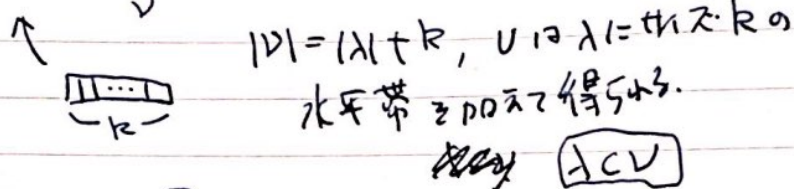 ν
|ν| = |λ| + k, νはλにサイズkの
k
水平帯を加えて得られる.
λ⊂ν